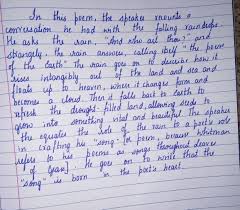 In this poem, the speaker recounts a
conversation he had with the falling raindrops.
He asks the rain, "And who art thou?" and
strangely, the rain answers, calling itself "the poem
of the Earth." The rain goes on to describe how it
rises intangibly out of the land and sea and
floats up to heaven, where it changes form and
becomes a cloud. Then it falls back to Earth to
refresh the drought-filled land, allowing seeds to
grow into something vital and beautiful. The speaker
the equates the role of the rain to a poet's role
in crafting his "song" (or poem, because Whitman
refers to his poems as songs throughout Leaves
of Grass). He goes on to write that the
"song" is born in the poet's heart.